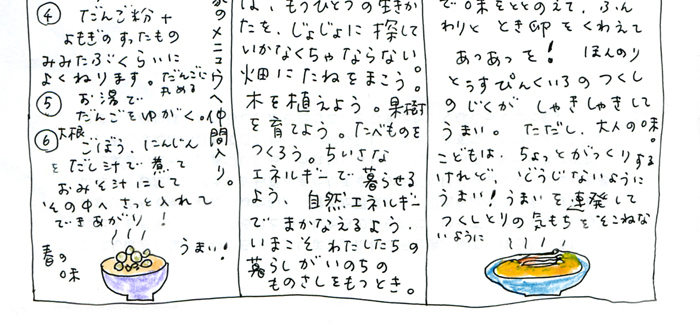 ④ だんご粉+
よもぎのすったもの
みみたぶくらいに
よくねります。だんごに
丸める
⑤ お湯で
だんごをゆがく。
⑥大根
ごぼう、にんじん
をだし汁で煮て
おみそ汁にして
その中へさっと入れて
できあがり!
春の
味
うまい!
のメニューへ仲間入り。
は、もうひとつの生きか
たを、じょじょに探して
いかなくちゃならない
畑にたねをまこう。
木を植えよう。果樹
を育てよう。たべものを
つくろう。ちいさな
エネルギーで暮らせる
よう、自然エネルギー
でまかなえるよう、
いまこそわたしたちの
暮らしがいのちの
ものさしをもつとき。
で味をととのえて、ふん
わりととき卵をくわえて
あつあっを! ほんのり
とうすぴんくいろのつくし
のじくがしゃきしゃきして
うまい。ただし、大人の味。
こどもは、ちょっとがっくりする
けれど、どうじないように
うまい!うまいを連発して
つくしとりの気もちをそこねな
いように